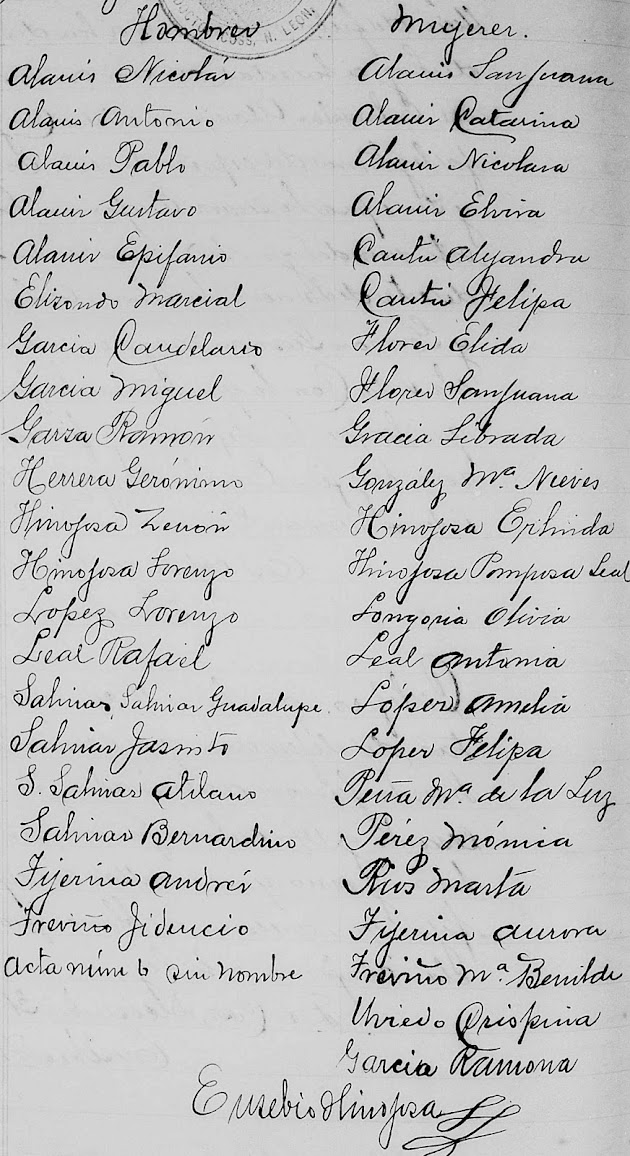 DOCTOR COSS, N. LEON.
Hombres
Mujeres.
Alanis Nicolás
Alanis Sanjuana
Alanis Antonio
Alanis Catarina
Alanis Pablo
Alanis Nicolasa
Alanis Gustavo
Alanis Elvira
Alanis Epifanio
Cantú Alejandra
Elizondo Marcial
Cantú Felipa
Garcia Candelario
Flores Elida
Garcia Miguel
Flores Sanjuana
Garza Ramón
Gracia Librada
Herrera Gerónimo
González Mª. Nieves
Hinojosa Zenón
Hinojosa Erlinda
Hinojosa Lorenzo
Hinojosa Pomposa Leal
Lopez Lorenzo
Longoria Olivia
Leal Rafael
Leal Antonia
Salinas, Salinas Guadalupe.
López Amelia
Salinas Jasinto
Lopez Felipa
S. Salinas Atilano
Peña Mª. de la Luz
Salinas Bernardino
Pérez Mónica
Tijerina Andrés
Rios Marta
Treviño Fidencio
Tijerina Aurora
Acta núm 6 sin nombre
Treviño Mª. Benilde
Uviedo Crispina
Garcia Ramona
Eusebio Hinojosa